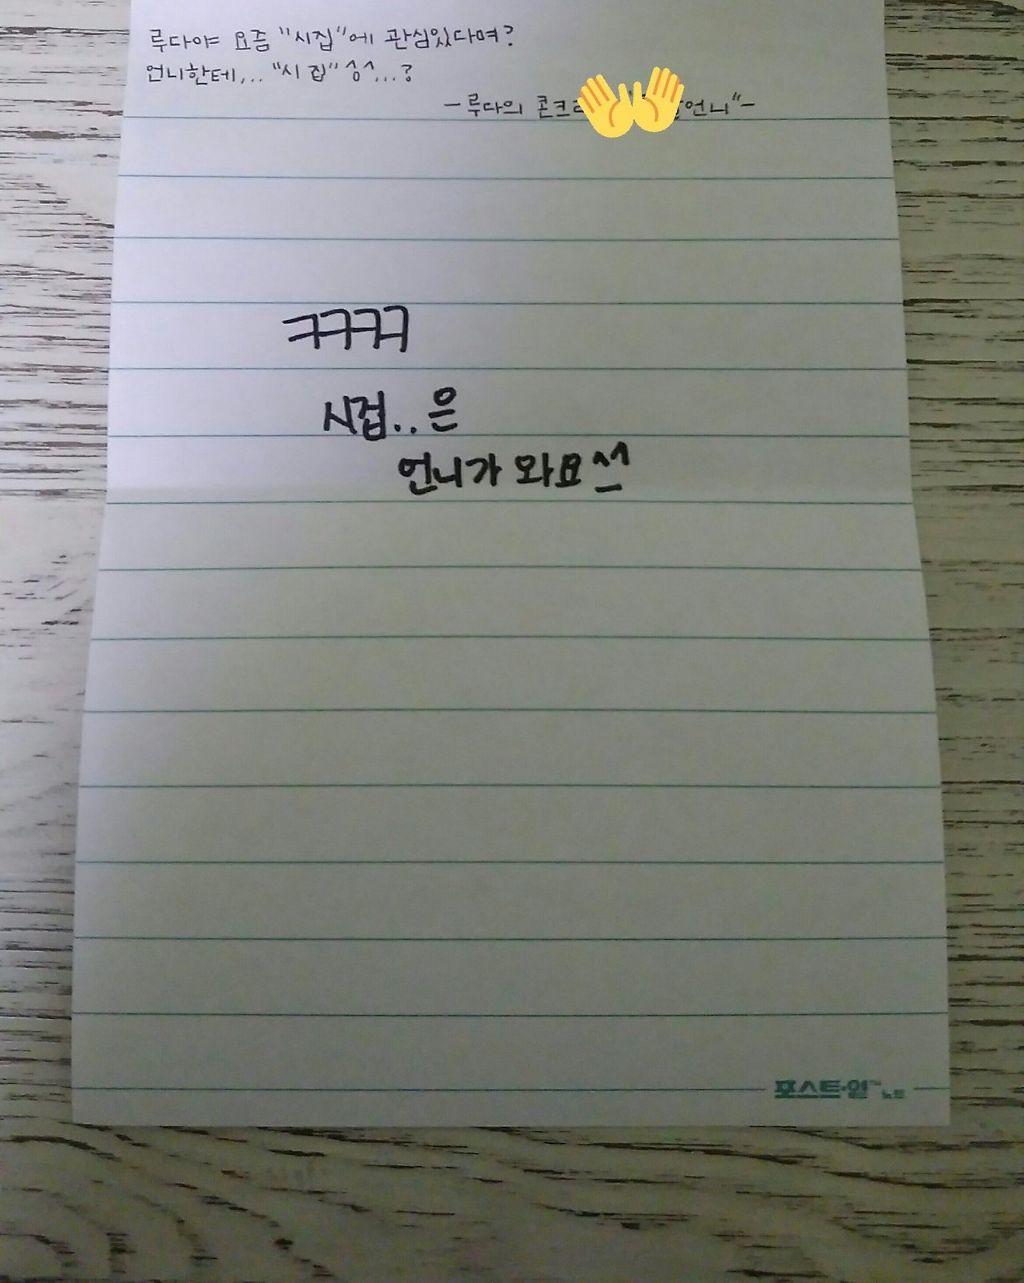 루다야 요즘 "시집"에 관심있다며?
언니한테,.. "시 집" ^^...?
-루다의 언니"-
ㅋㅋㅋㅋ
시집..은
언니가 와요^^
포스트-잇™ 노트